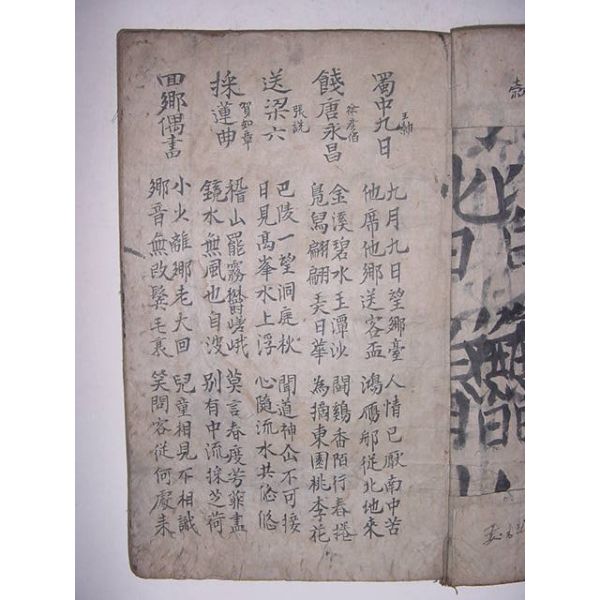 蜀中九日 王勃
九月九日望鄉臺 人情已厭南中苦
他席他鄉送客盃 鴻鴈那從北地來
餞唐永昌 徐彥伯
金溪碧水玉潭沙 鬪鷄香陌行春捲
鳧舄翩翩弄日華 為摘東園桃李花
送梁六 張說
巴陵一望洞庭秋 聞道神仚不可接
日見髙峯水上浮 心隨流水共悠悠
採蓮曲 賀知章
稽山罷霧鬱嵯峨 莫言春度芳菲盡
鏡水無風也自波 別有中流採芝荷
回鄉偶書
小少離鄉老大回 兒童相見不相識
鄉音無改鬓毛衰 笑問客從何處来